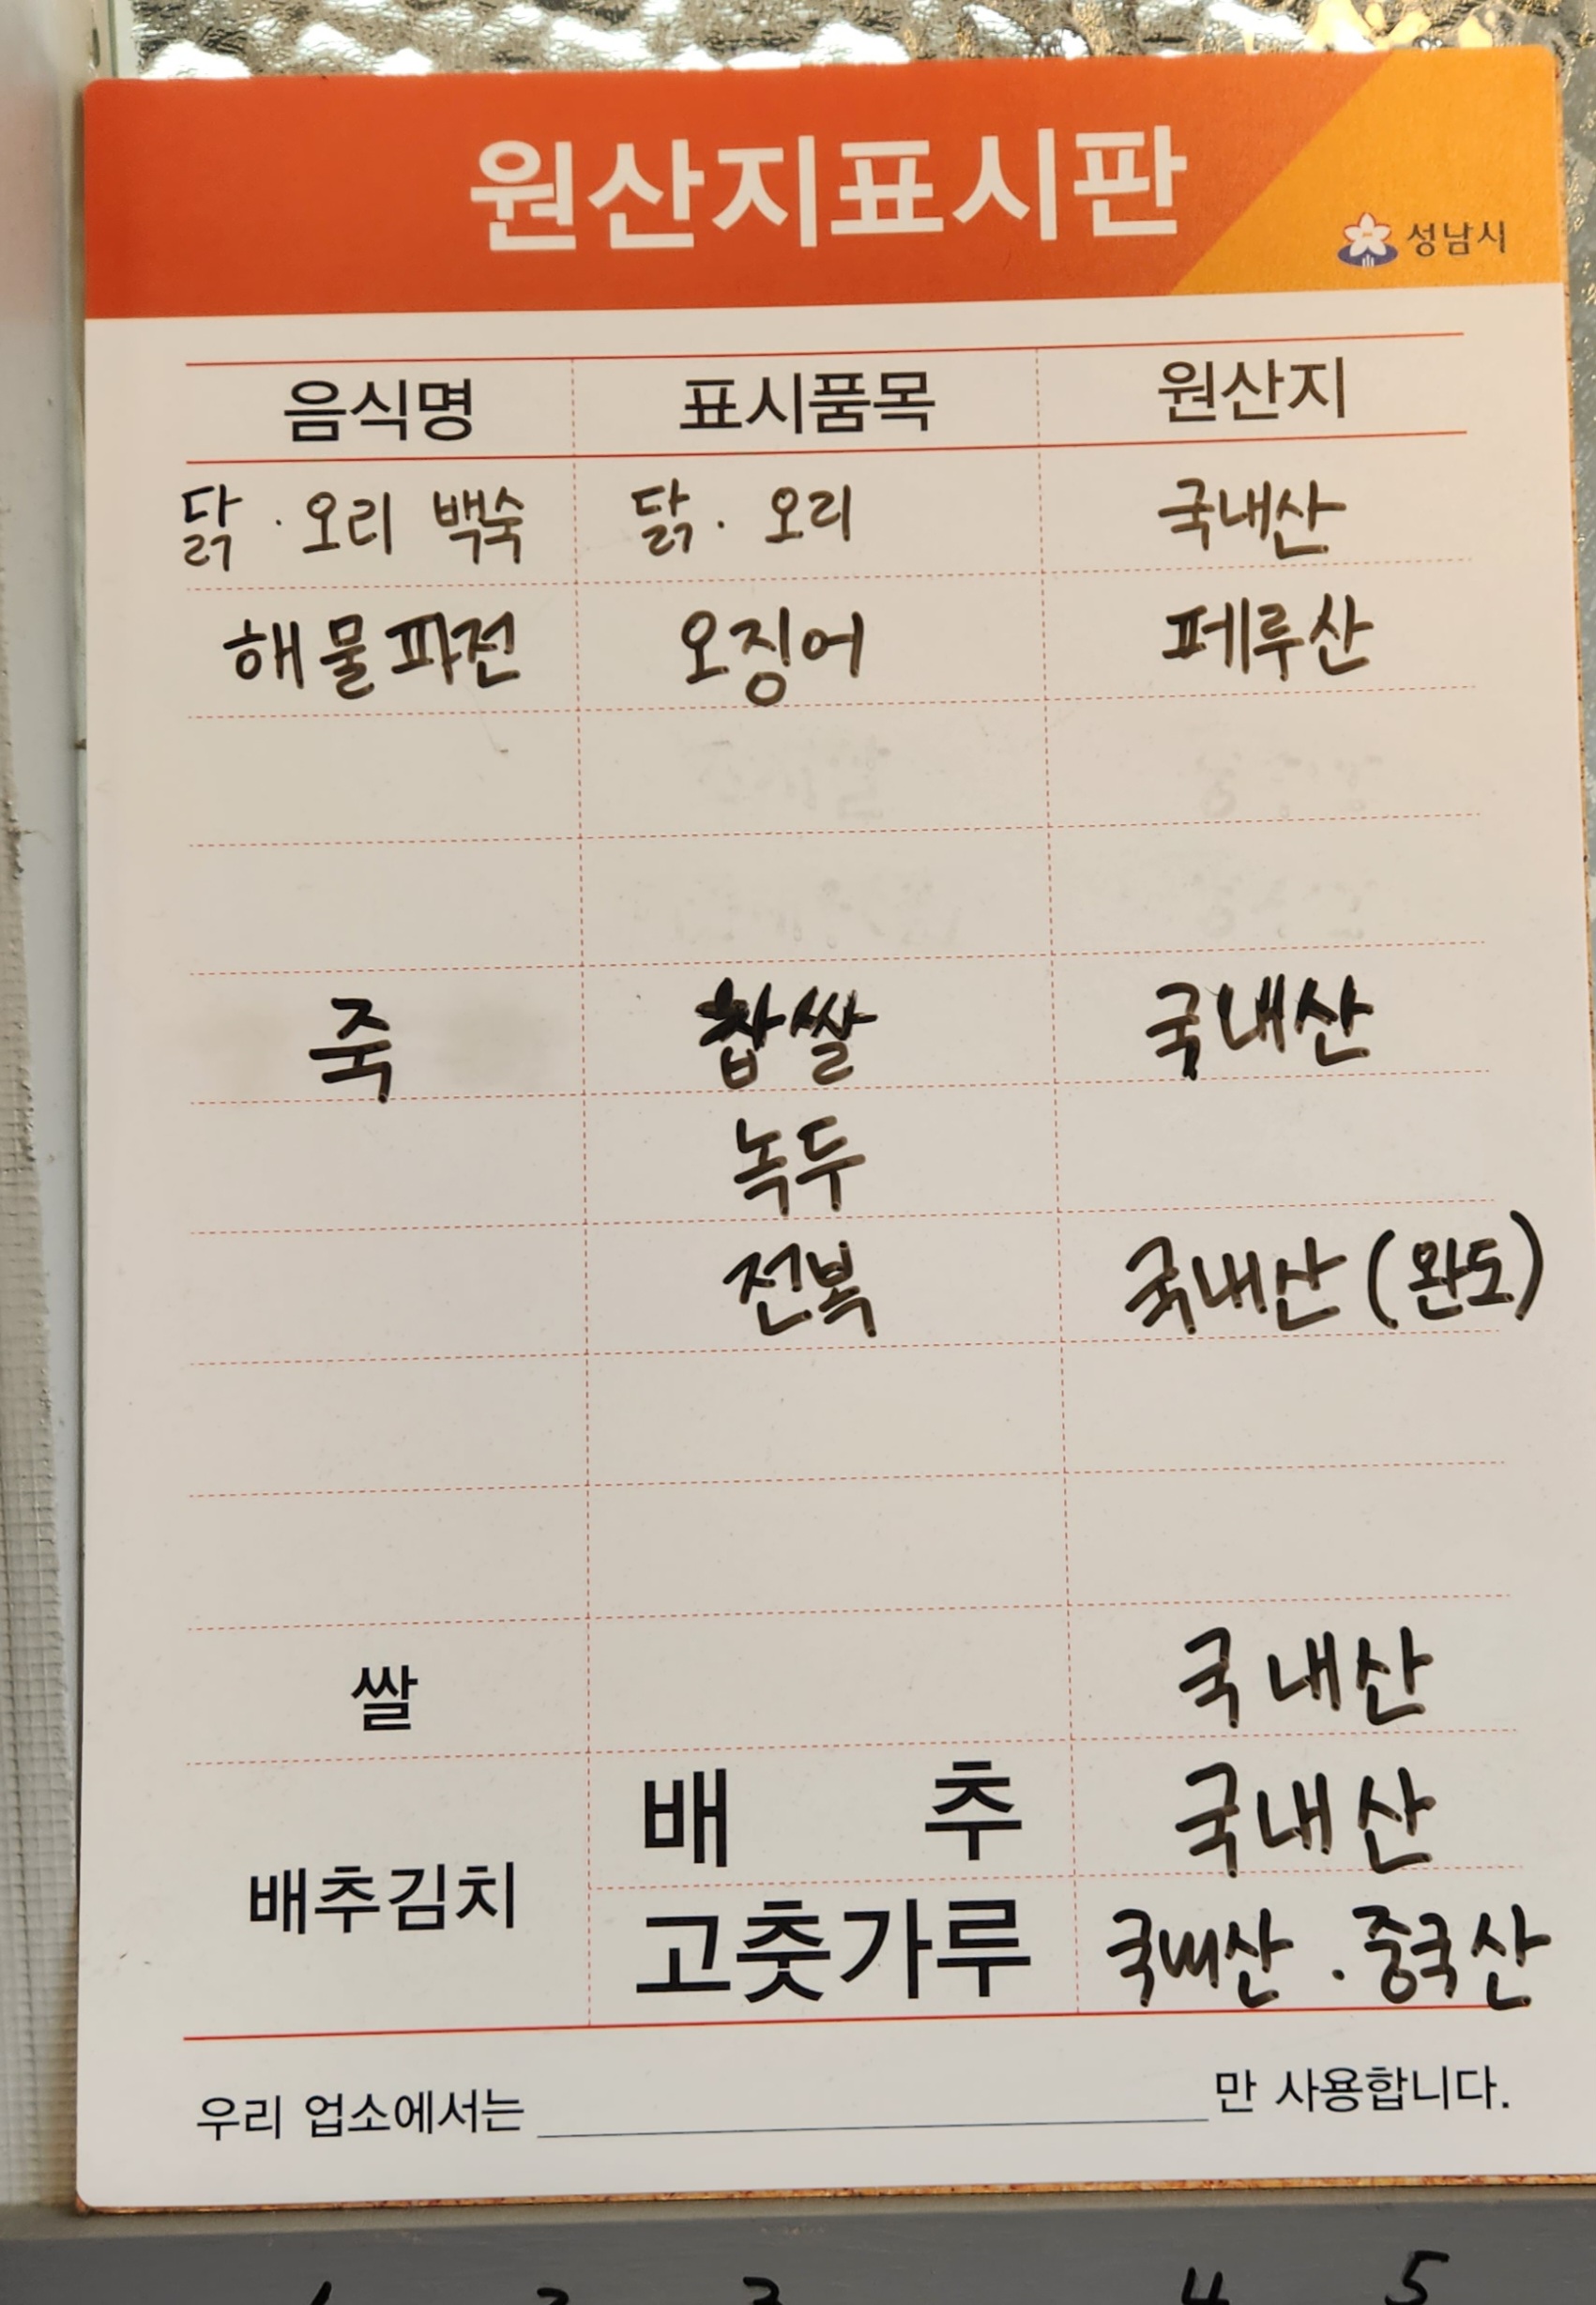 원산지표시판
성남시
음식명 표시품목 원산지
닭 · 오리 백숙 닭 · 오리 국내산
해물파전 오징어 페루산
죽 찹쌀 국내산
녹두
전복 국내산 (완도)
쌀 국내산
배추 국내산
배추김치
고춧가루 국내산 · 중국산
우리 업소에서는 만 사용합니다.
4 5